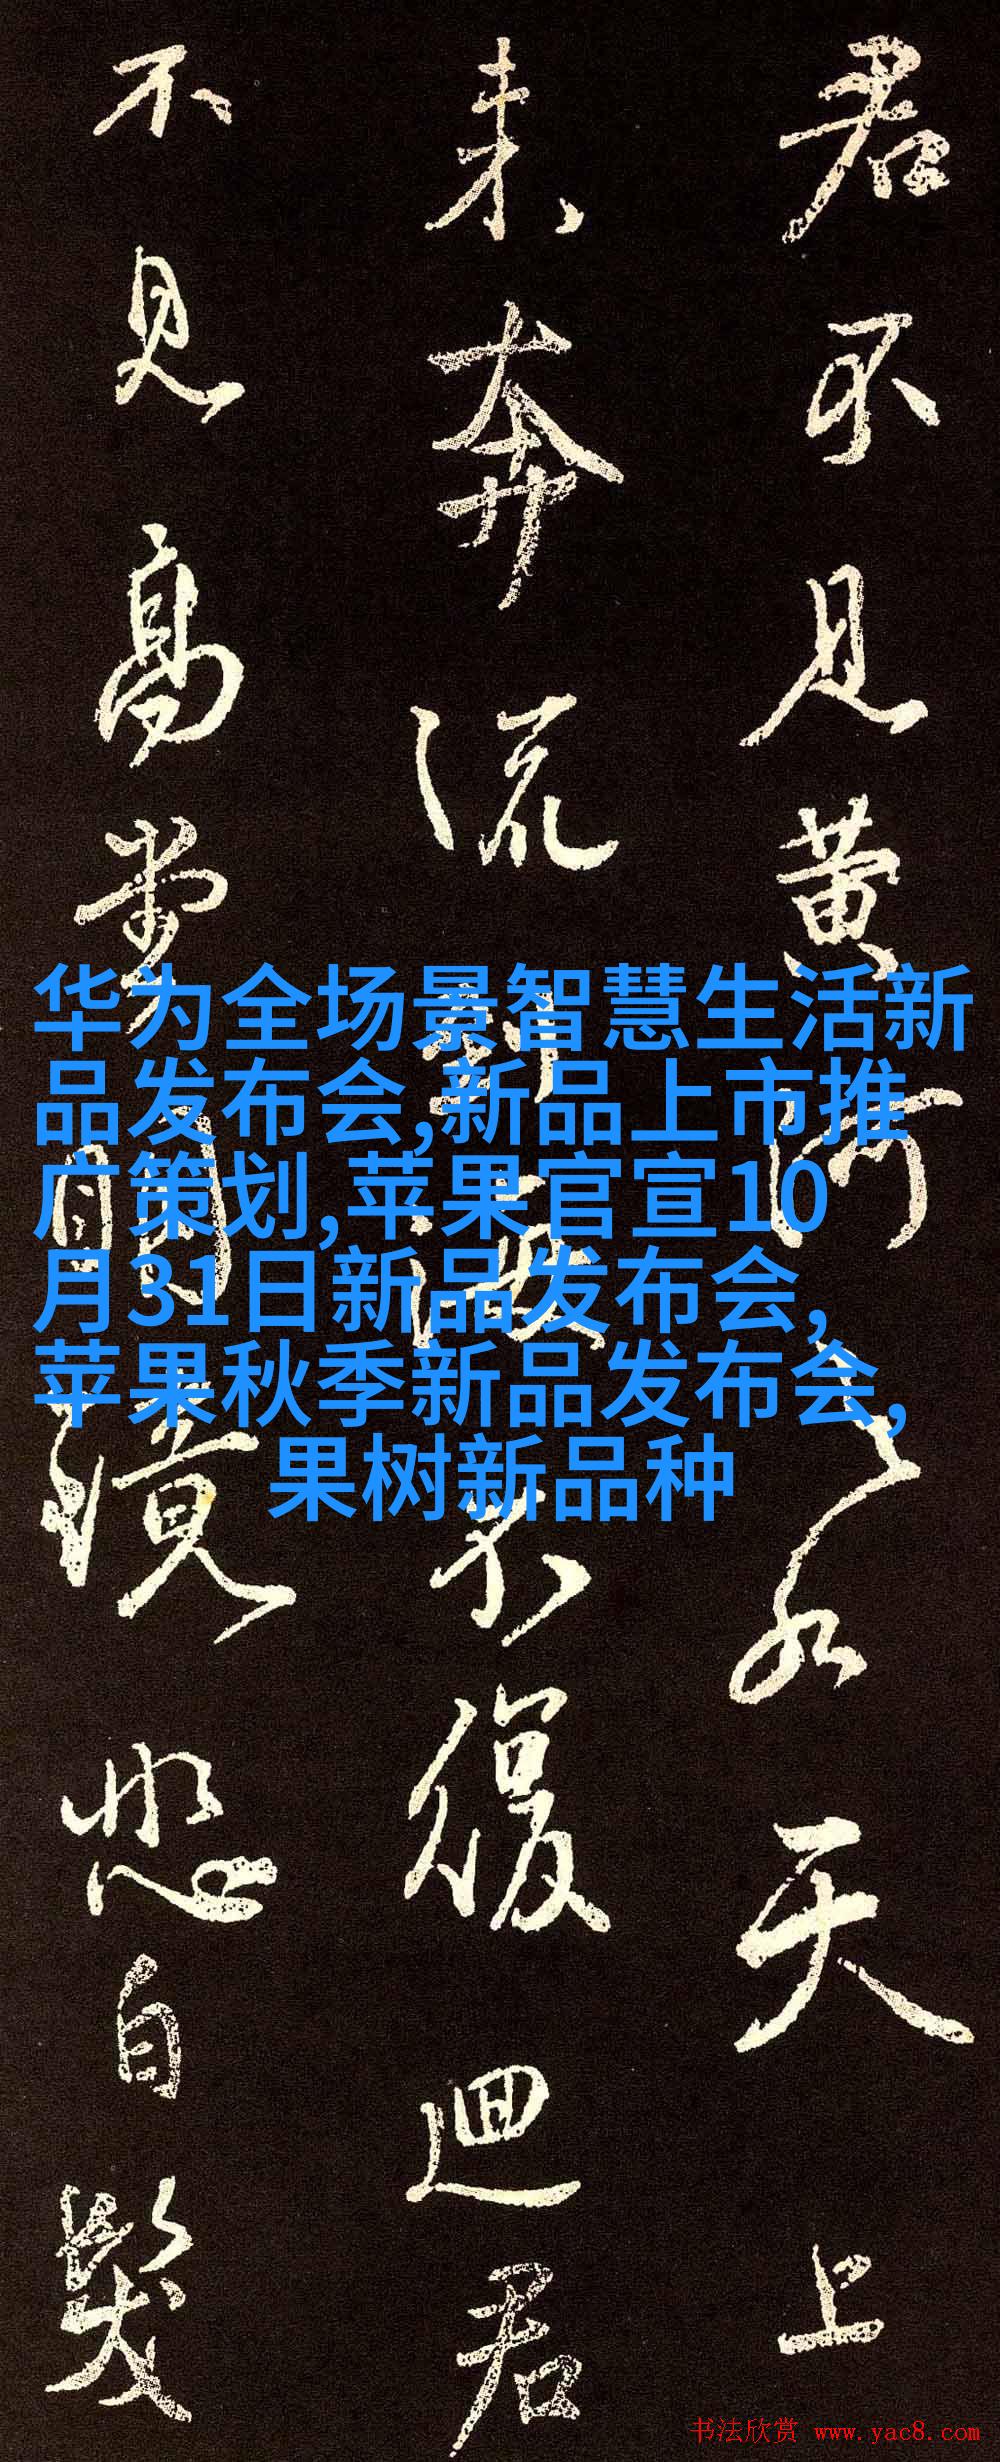 君不見黄河之水天上
来奔流到海不復迴君
不見高堂明鏡悲白髮
华为全场景智慧生活新
品发布会,新品上市推
广策划,苹果官宣10
月31日新品发布会,
苹果秋季新品发布会,
果树新品种
书法欣赏 www.yac8.com